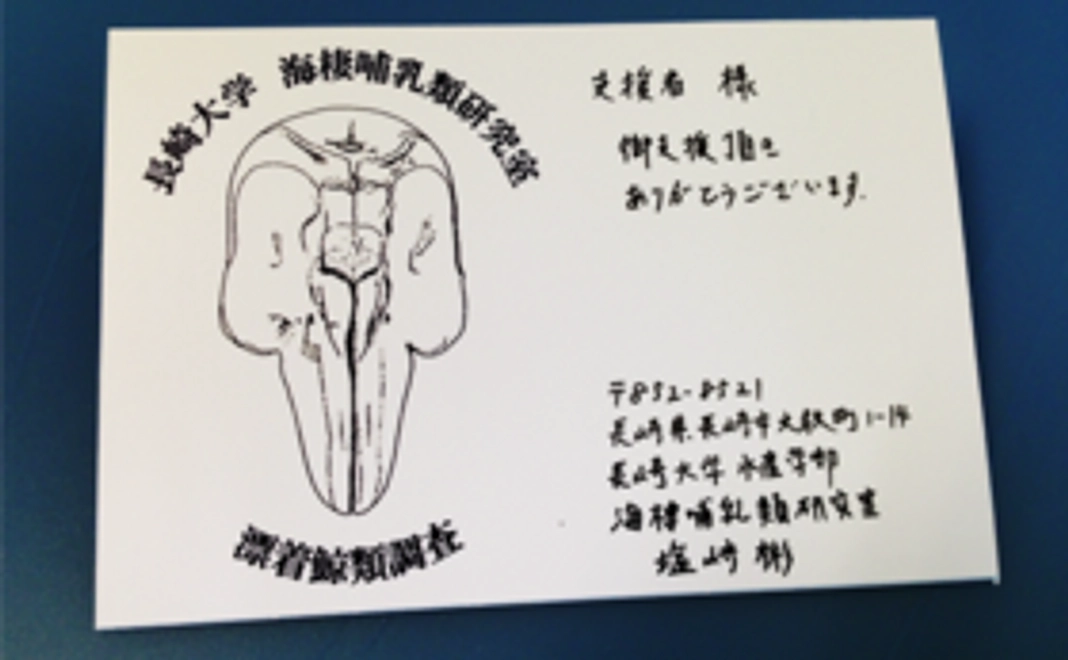 長崎大学 海棲哺乳類研究室
漂着鯨類調査
支援者 様
御支援頂き
ありがとうございます.
〒852-8521
長崎県長崎市文教町1-14
長崎大学 水産学部
海棲哺乳類研究室
塩崎 彬